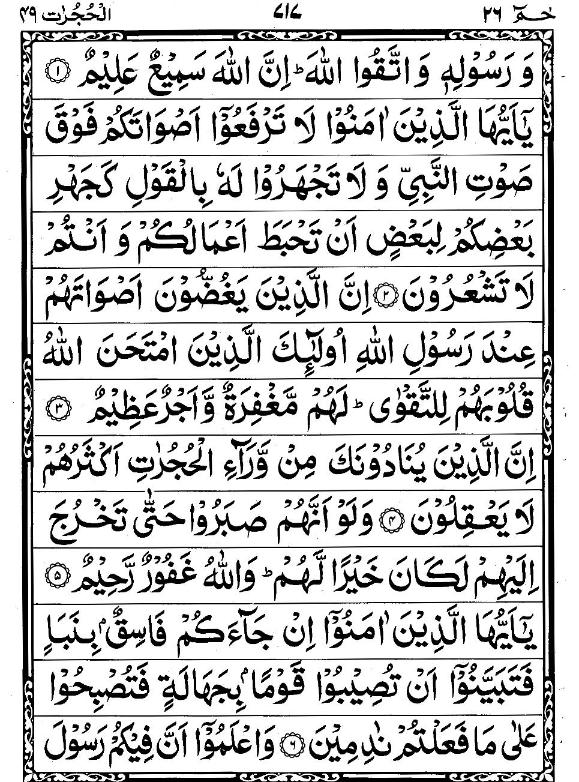 الْحُجُرٰت ۴۹ ۷۱۷ حٰمٓ ۲۶
وَ رَسُوْلِهٖ وَ اتَّقُوا اللّٰهَ ؕ اِنَّ اللّٰهَ سَمِيْعٌ عَلِيْمٌ ۝۱
يٰۤاَيُّهَا الَّذِيْنَ اٰمَنُوْا لَا تَرْفَعُوْۤا اَصْوَاتَكُمْ فَوْقَ
صَوْتِ النَّبِيِّ وَ لَا تَجْهَرُوْا لَهٗ بِالْقَوْلِ كَجَهْرِ
بَعْضِكُمْ لِبَعْضٍ اَنْ تَحْبَطَ اَعْمَالُكُمْ وَ اَنْتُمْ
لَا تَشْعُرُوْنَ ۝۲ اِنَّ الَّذِيْنَ يَغُضُّوْنَ اَصْوَاتَهُمْ
عِنْدَ رَسُوْلِ اللّٰهِ اُولٰٓئِكَ الَّذِيْنَ امْتَحَنَ اللّٰهُ
قُلُوْبَهُمْ لِلتَّقْوٰى ؕ لَهُمْ مَّغْفِرَةٌ وَّاَجْرٌ عَظِيْمٌ ۝۳
اِنَّ الَّذِيْنَ يُنَادُوْنَكَ مِنْ وَّرَآءِ الْحُجُرٰتِ اَكْثَرُهُمْ
لَا يَعْقِلُوْنَ ۝۴ وَلَوْ اَنَّهُمْ صَبَرُوْا حَتّٰى تَخْرُجَ
اِلَيْهِمْ لَكَانَ خَيْرًا لَّهُمْ ؕ وَاللّٰهُ غَفُوْرٌ رَّحِيْمٌ ۝۵
يٰۤاَيُّهَا الَّذِيْنَ اٰمَنُوْۤا اِنْ جَآءَكُمْ فَاسِقٌۢ بِنَبَاٍ
فَتَبَيَّنُوْۤا اَنْ تُصِيْبُوْا قَوْمًۢا بِجَهَالَةٍ فَتُصْبِحُوْا
عَلٰى مَا فَعَلْتُمْ نٰدِمِيْنَ ۝۶ وَاعْلَمُوْۤا اَنَّ فِيْكُمْ رَسُوْلَ